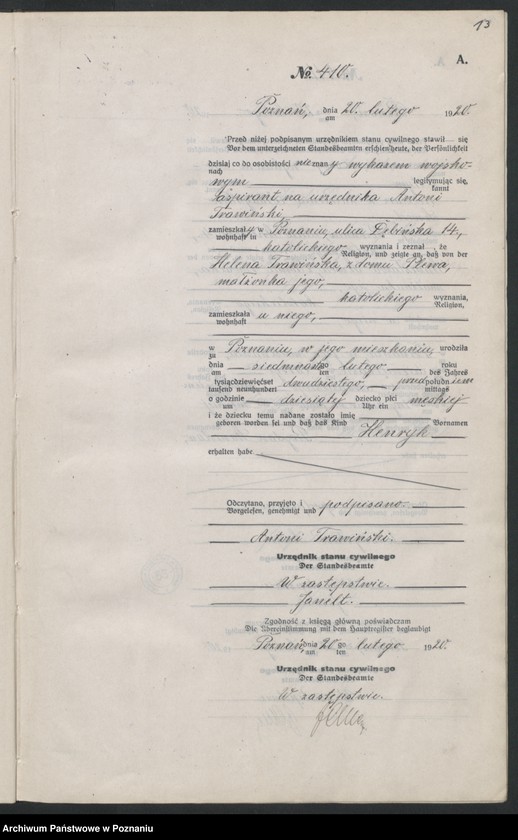 13
A.
№ 410.
Poznań, dnia 20. lutego 1920.
am
Przed niżej podpisanym urzędnikiem stanu cywilnego stawił się
Vor dem unterzeichneten Standesbeamten erschien heute, der Persönlichkeit
dzisiaj co do osobistości nie znany wykazem wojsko-
nach
wym legitymując się,
kannt
aspirant na urzędnika Antoni
Trawiński,
zamieszkały w Poznaniu, ulica Dębińska 14,
wohnhaft in
katolickiego wyznania i zeznał, że
Religion, und zeigte an, daß von der
Helena Trawińska, z domu Plewa,
małżonka jego,
katolickiego wyznania,
Religion,
zamieszkała u niego,
wohnhaft
w Poznaniu, w jego mieszkaniu, urodziła
zu
dnia siedmnastego lutego roku
am ten des Jahres
tysiącdziewięćset dwudziestego, przedpołudniem
tausend neunhundert mittags
o godzinie dziesiątej dziecko płci męskiej
um Uhr ein
i że dziecku temu nadane zostało imię
geboren worden sei und daß das Kind Vornamen
Henryk
erhalten habe.
Odczytano, przyjęto i podpisano
Vorgelesen, genehmigt und
Antoni Trawiński.
Urzędnik stanu cywilnego
Der Standesbeamte
W zastępstwie.
Janelt.
Zgodność z księgą główną poświadczam
Die Übereinstimmung mit dem Hauptregister beglaubigt
Poznań, dnia 20 go lutego 1920.
am ten
Urzędnik stanu cywilnego
Der Standesbeamte
W zastępstwie.
Archiwum Państwowe w Poznaniu